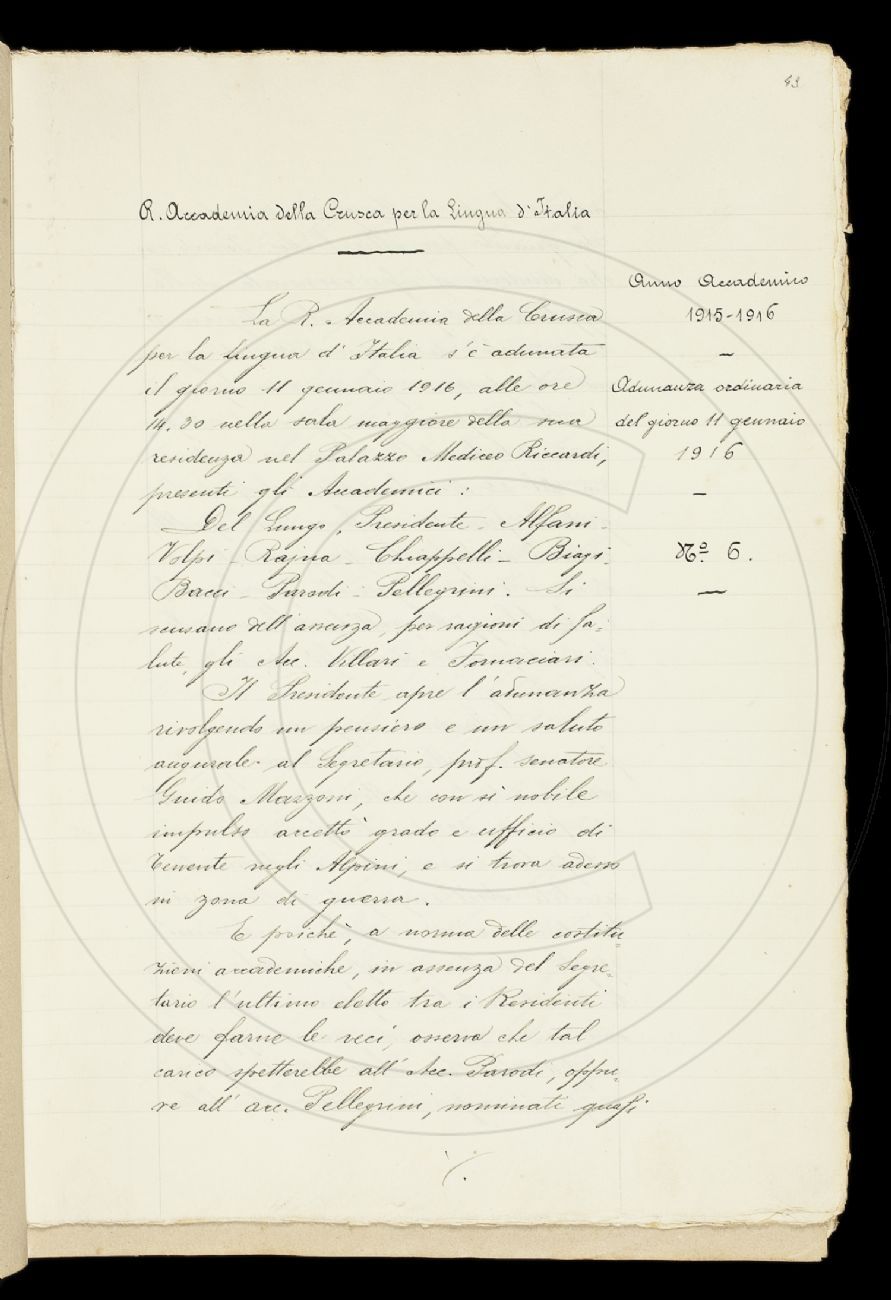 43
R. Accademia della Crusca per la Lingua d'Italia
Anno Accademico
1915-1916
Adunanza ordinaria
del giorno 11 gennaio
1916
Nº 6.
La R. Accademia della Crusca
per la Lingua d'Italia s'è adunata
il giorno 11 gennaio 1916, alle ore
14.30 nella sala maggiore della sua
residenza nel Palazzo Mediceo Riccardi,
presenti gli Accademici:
Del Lungo, Presidente - Alfani -
Volpi - Rajna - Chiappelli - Biagi -
Bacci - Parodi - Pellegrini. Si
scusano dell'assenza, per ragioni di sa-
lute, gli Acc. Villari e Fornaciari.
Il Presidente apre l'adunanza
rivolgendo un pensiero e un saluto
augurale al Segretario, prof. senatore
Guido Mazzoni, che con sì nobile
impulso accettò grado e ufficio di
tenente negli Alpini, e si trova adesso
in zona di guerra.
E poichè, a norma delle costitu-
zioni accademiche, in assenza del Segre-
tario l'ultimo eletto tra i Residenti
deve farne le veci, osserva che tal
carico spetterebbe all'Acc. Parodi, oppu-
re all'acc. Pellegrini, nominati quasi
./.